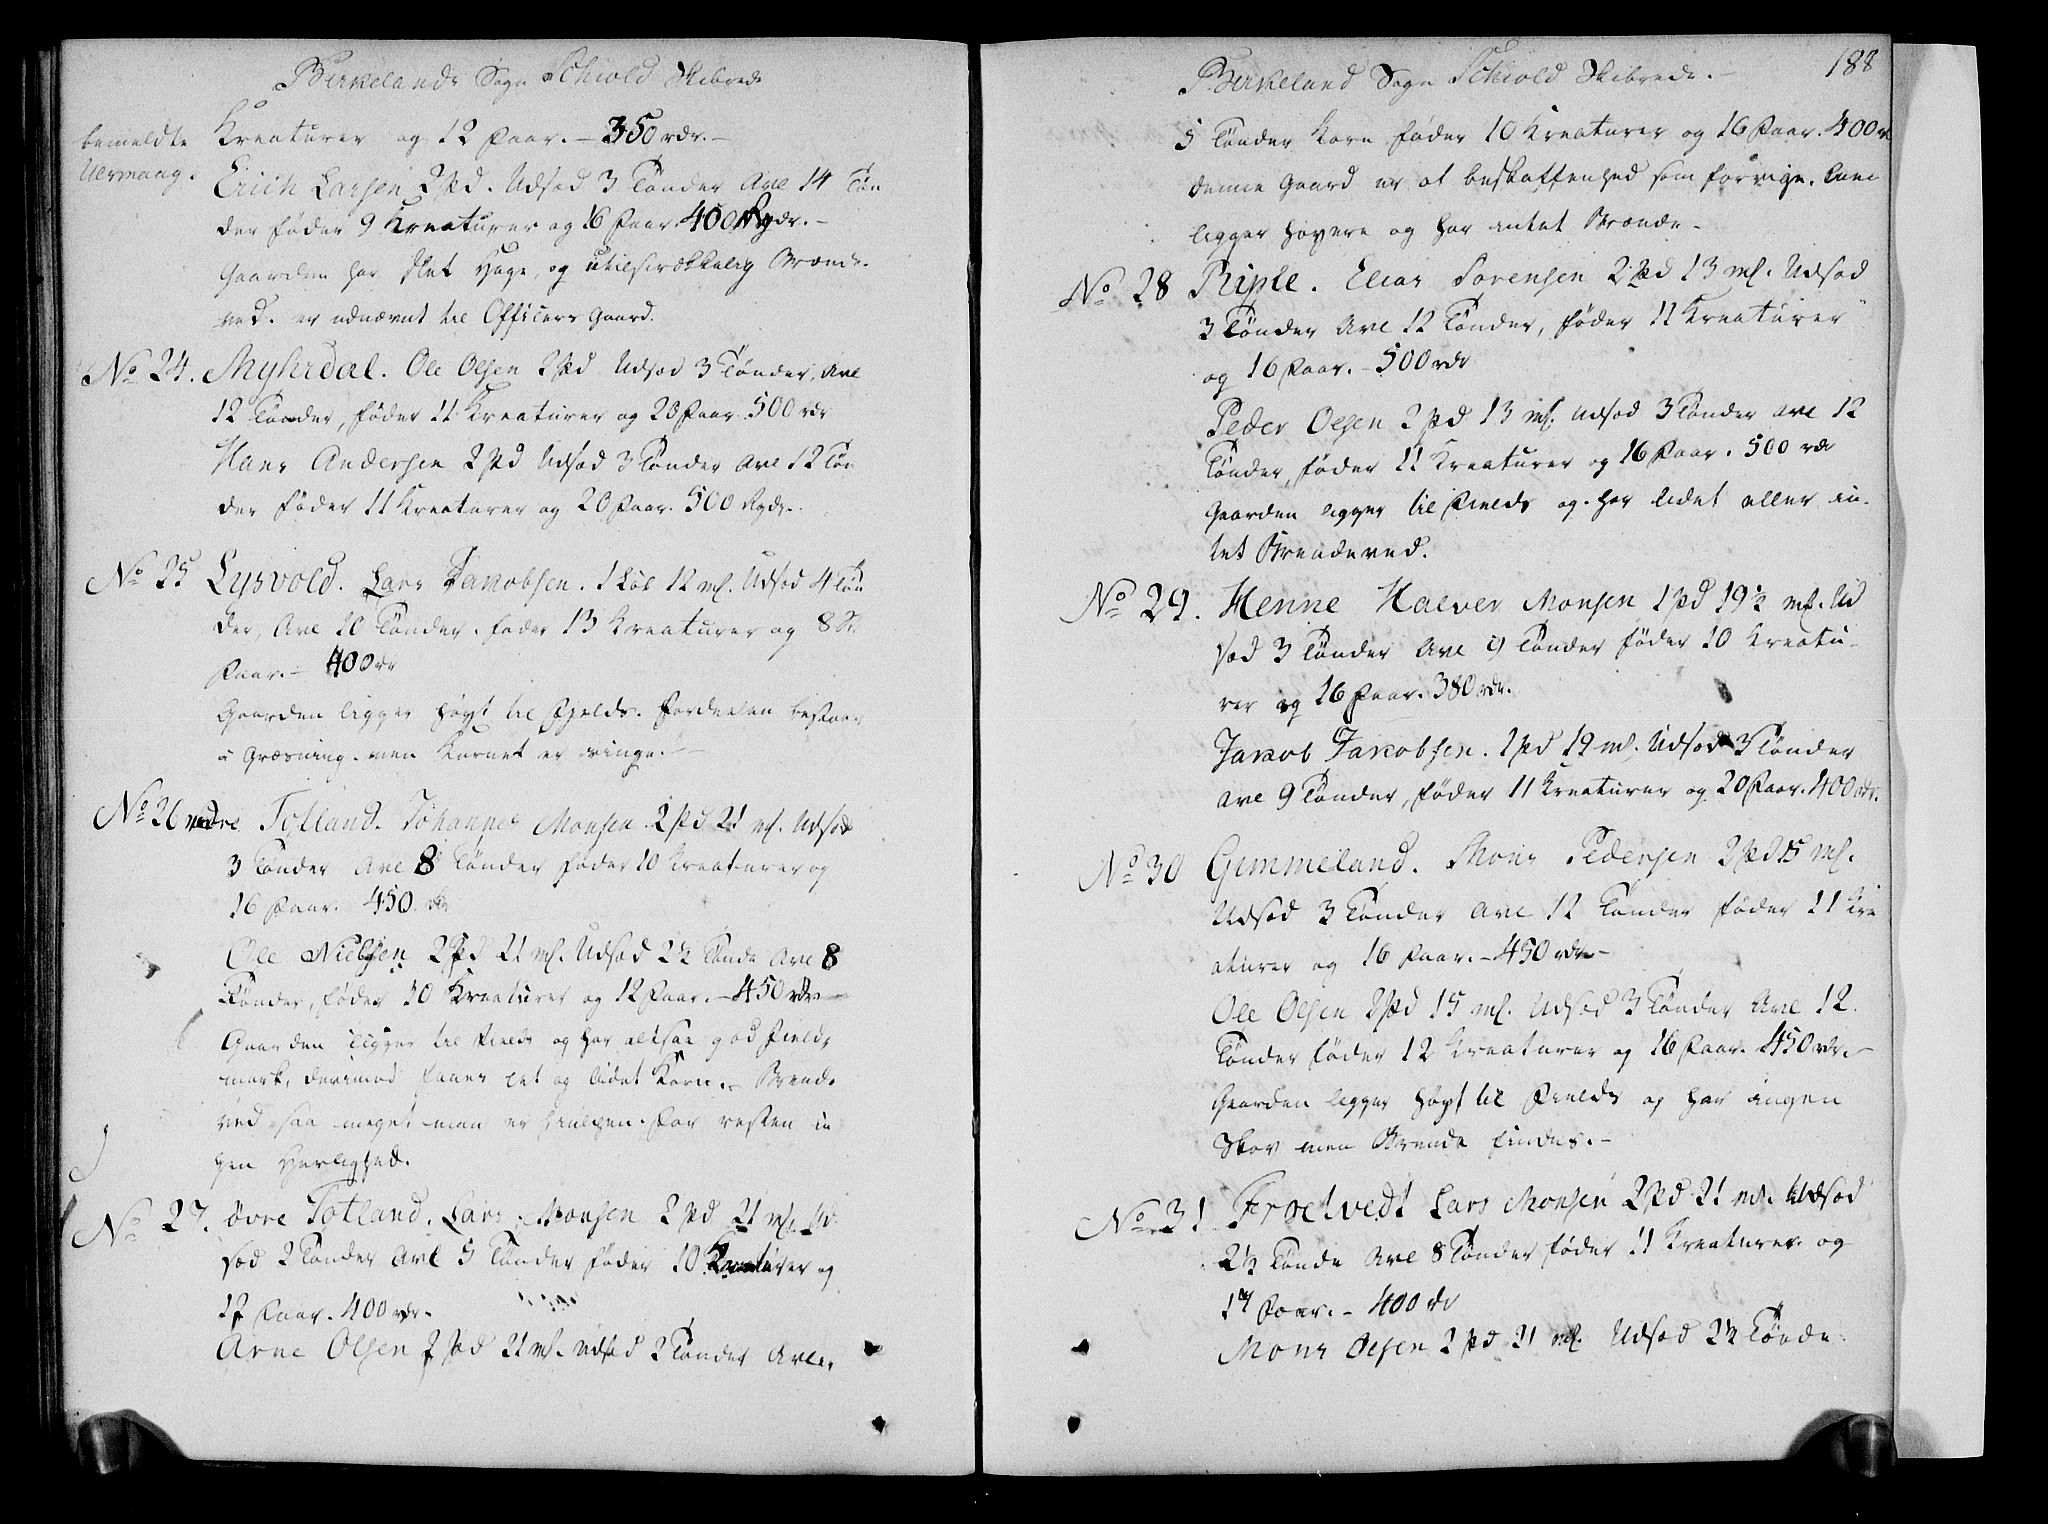 Birkelands Sogn Schiold Skibrede
bemeldte Kreaturer og 12 Faar. – 350 rdr. –
Ulvmang. Erich Larsen 2 Pd. Udsæd 3 Tønder Avl 14 Tøn
der føder 9 Kreaturer og 16 Faar. 400 Rgdr. –
Gaarden har slet Hage, og utilstrækkelig Brænde
ved. er udnævnt til Officers Gaard.
No 24. Myhrdal. Ole Olsen 2 Pd Udsæd 3 Tønder, Avl
12 Tønder, føder 11 Kreaturer og 20 Faar 500 rdr
Hans Andersen 2 Pd Udsæd 3 Tønder Avl 12 Tøn
der føder 11 Kreaturer og 20 Faar. 500 Rgdr.
No 25 Lysvold. Lars Jakobsen. 1 Løb 12 mk. Udsæd 4 Tøn
der, Avl 20 Tønder. føder 13 Kreaturer og 8 St.
Faar. – 400 rdr
Gaarden ligger høyt til Fjelds. Fordeelen bestaar
i Græsning. men Kornet er ringe. –
No 26 nedre Totland. Johannes Monsen 2 Pd 21 mk. Udsæd
3 Tønder Avl 8 Tønder føder 10 Kreaturer og
16 Faar. 450 rdr
Ole Nielsen 2 Pd 21 mk. Udsæd 2½ Tønde Avl 8
Tønder, føder 10 Kreaturer og 12 Faar. – 450 rdr –
Gaarden ligger til Fields og har altsaa god Field,
mark, derimod faaer let og lidet Korn. – Brende
ved saa meget man er hiulpen. for resten in
gen Herlighed.
No 27. øvre Totland. Lars Monsen 2 Pd 21 mk. Ud
sæd 2 Tønder Avl 5 Tønder føder 10 Kreaturer og
17 Faar. 400 rdr.
Arne Olsen 2 Pd 21 mk. udsæd 2 Tønder Avler
188
Birkeland Sogn Schiold Skibrede. –
5 Tønder Korn føder 10 Kreaturer og 16 Faar. 400 r
denne Gaard er af beskaffenhed som forrige.
ligger høyere og har intet Brænde –
No 28 Riple. Elias Sørensen 2 Pd 13 mk. Udsæd
3 Tønder Avl 12 Tønder, føder 11 Kreaturer
og 16 Faar. – 500 rdr
Peder Olsen 2 Pd 13 mk. udsæd 3 Tønder avl 12
Tønder, føder 11 Kreaturer og 16 Faar. 500 rdr
Gaarden ligger til Fields og har lidet eller in
tet Brendeved.
No 29. Henne Halver Monsen 1 Pd 19½ mk. Ud
sæd 3 Tønder Avl 9 Tønder føder 10 Kreatu
rer og 16 Faar. 380 rdr.
Jakob Jakobsen. 1 Pd 19 mk. Udsæd 3 Tønder
avl 9 Tønder, føder 11 Kreaturer og 20 Faar. 400 rdr.
No 30 Gimmeland. Mons Pedersen 2 Pd 15 mk.
Udsæd 3 Tønder Avl 12 Tønder føder 11 Kre
aturer og 16 Faar. – 450 rdr –
Ole Olsen 2 Pd 15 mk. Udsæd 3 Tønder Avl 12.
Tønder føder 12 Kreaturer og 16 Faar. 450 rdr. –
Gaarden ligger høyt til Fields og har ingen
Skov men Brende findes. –
No 31 Froetvedt Lars Monsen 2 Pd 21 mk. Udsæd
2½ Tønde Avl 8 Tønder føder 11 Kreaturer og
14 Faar. – 400 rdr
Mons Olsen 2 Pd 21 mk. Udsæd 2½ Tønde